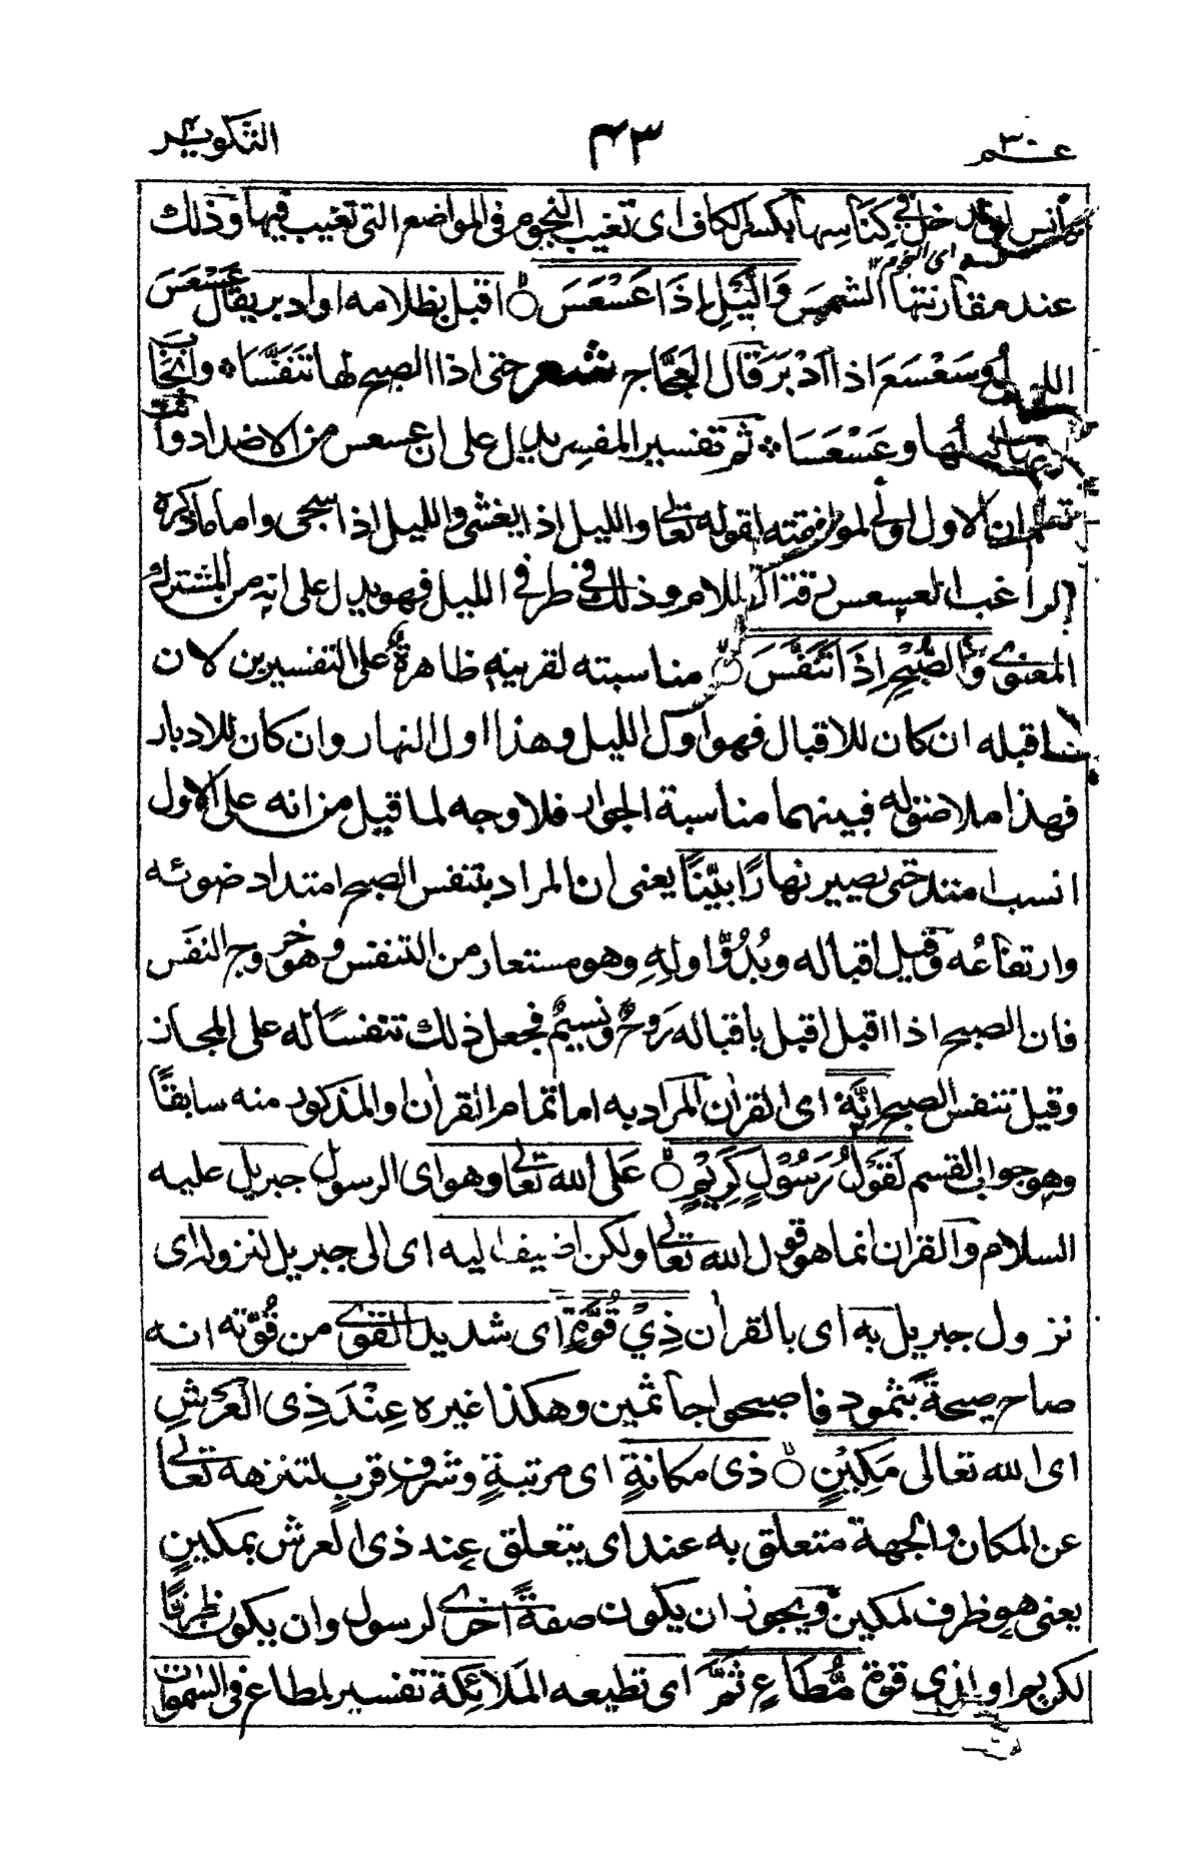 عـــم ٣٠
٤٣
التكوير
انس اى تدخل فى كِنَاسِها بكسر الكاف اى تغيب النجوم فى المواضع التى تغيب فيها وذلك
اى النجوم ١٢
عند مقارنتها الشمس وَالَّيْلِ إِذَا عَسْعَسَ ○ اقبل بظلامه او ادبر يقال عَسْعَسَ
الليل وسَعْسَعَ اذا أَدْبَرَ قال العَجَّاج شعر حتى اذا الصبح لها تَنَفَّسَا ٭ وانجَابَ
عنها ليلُها وعَسْعَسَا ٭ ثم تفسير المفسر يدل على ان عسعس من الاضداد
ان الاول اولى لموافقته لقوله تعالى والليل اذا يغشى والليل اذا سجى واما ما ذكره
الراغب العسعس رقة الظلام وذلك فى طرفى الليل فهو يدل على انه من المشترك
المعنوى وَالصُّبْحِ إِذَا تَنَفَّسَ ○ مناسبته لقرينه ظاهرة على التفسيرين لان
ما قبله ان كان للاقبال فهو اول الليل وهذا اول النهار وان كان للادبار
فهذا ملاصق له فبينهما مناسبة الجوار فلا وجه لما قيل من انه على الاول
انسب امتد حتى يصير نهارًا بيّنًا يعنى ان المراد بتنفس الصبح امتداد ضوئه
وارتفاعُه وقيل اقباله وبُدُوّ اولِهِ وهو مستعار من التنفس وهو خروج النفَس
فان الصبح اذا اقبل اقبل باقباله رَوحٌ ونسيمٌ فجعل ذلك تنفسًا له على المجاز
وقيل تنفس الصبح إِنَّهُ اى القرآن المراد به اما تمام القرآن او المذكور منه سابقًا
وهو جواب القسم لَقَوْلُ رَسُوْلٍ كَرِيْمٍ ○ على الله تعالى وهو اى الرسول جبريل عليه
السلام والقرآن انما هو قول الله تعالى ولكن اضيف اليه اى الى جبريل لنزوله اى
نزول جبريل به اى بالقرآن ذِيْ قُوَّةٍ اى شديد القوى من قُوّته انه
صاح صيحةً بثمود فاصبحوا جاثمين وهكذا غيره عِنْدَ ذِى الْعَرْشِ
اى الله تعالى مَكِيْنٍ ○ ذى مكانةٍ اى مرتبةٍ وشرفٍ قربٍ لتنزهه تعالى
عن المكان والجهة متعلق به عند اى يتعلق عند ذى العرش بمكينٍ
يعنى هو ظرف لمكين ويجوز ان يكون صفةً اخرى لرسول وان يكون ظرفًا
لكريم او لذى قوة مُّطَاعٍ ثَمَّ اى تطيعه الملائكة تفسير لمطاع فى السموات